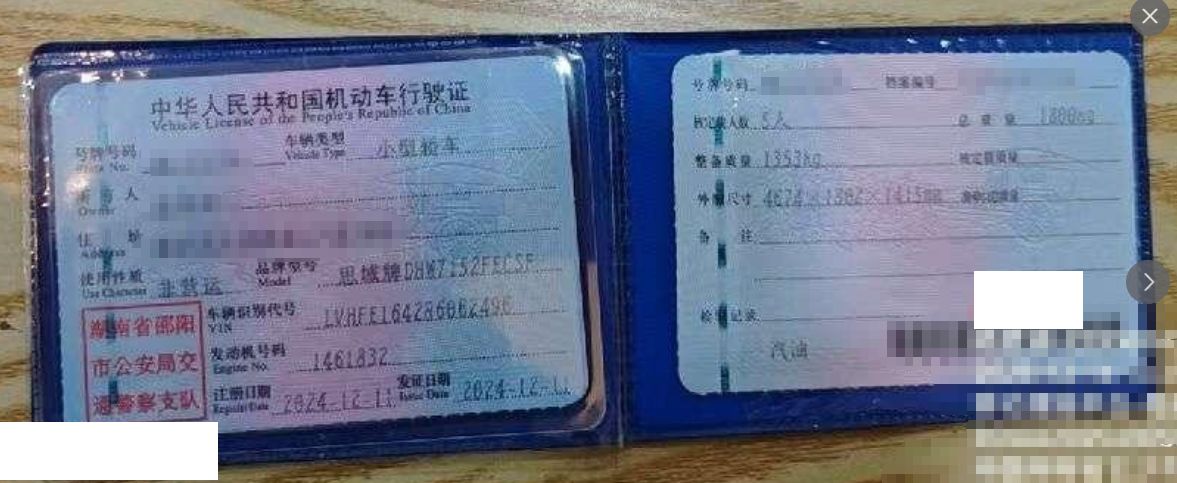 中华人民共和国机动车行驶证
Vehicle License of the People's Republic of China
号牌号码
Plate No.
车辆类型 小型轿车
Vehicle Type
所有人
Owner
住址
Address
使用性质 非营运
Use Character
品牌型号 思域牌DHW7152FECSF
Model
湖南省邵阳
市公安局交
通警察支队
车辆识别代号
VIN
发动机号码 1461832
Engine No.
注册日期 2024-12-11
Register Date
发证日期 2024-12-11
Issue Date
号牌号码 档案编号
核定载人数 5人 总质量
整备质量 1353kg 核定载质量
外廓尺寸 4674×1802×1415mm
备注
检验记录
汽油